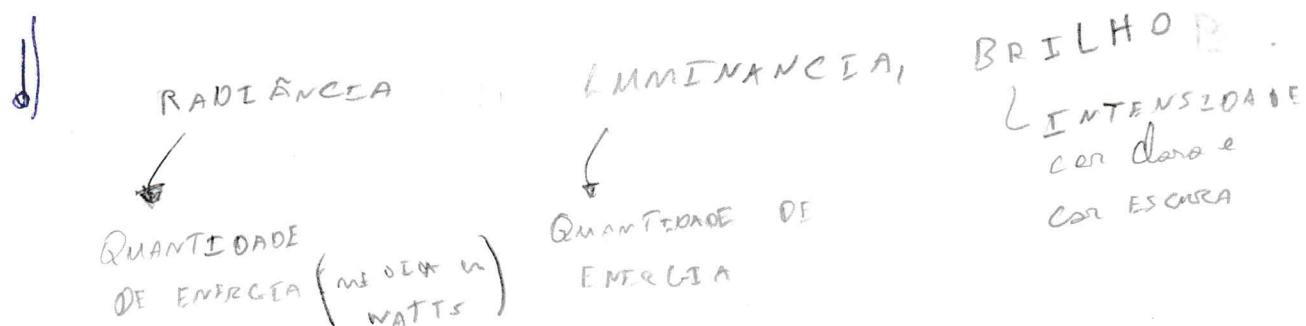 d)
RADIÂNCIA
QUANTIDADE
DE ENERGIA (MEDIDA EM
WATTS)
LUMINANCIA,
QUANTIDADE DE
ENERGIA
BRILHO
INTENSIDADE
cor clara e
cor ESCURA